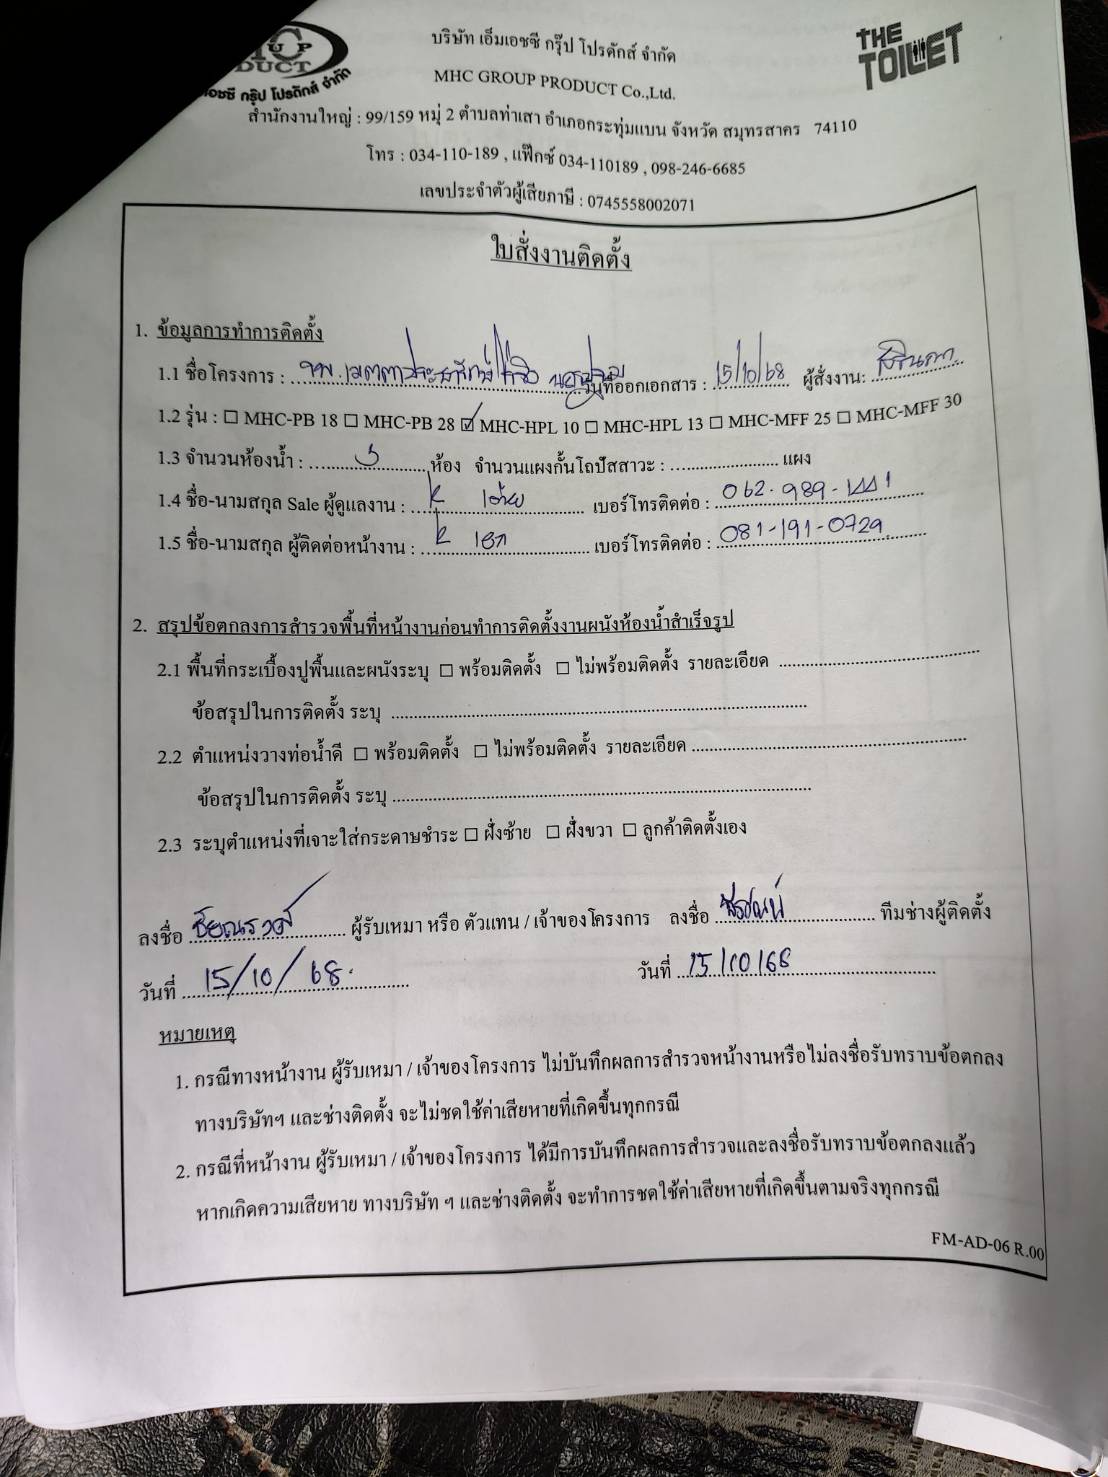 บริษัท เอ็มเอชซี กรุ๊ป โปรดักส์ จำกัด
THE TOILET
DUCT
MHC GROUP PRODUCT Co.,Ltd.
อชซี กรุ๊ป โปรดักส์ จำกัด
สำนักงานใหญ่ : 99/159 หมู่ 2 ตำบลท่าเสา อำเภอกระทุ่มแบน จังหวัด สมุทรสาคร 74110
โทร : 034-110-189 , แฟ๊กซ์ 034-110189 , 098-246-6685
เลขประจำตัวผู้เสียภาษี : 0745558002071
ใบสั่งงานติดตั้ง
1. ข้อมูลการทำการติดตั้ง
1.1 ชื่อโครงการ : วันที่ออกเอกสาร : 15/10/68 ผู้สั่งงาน:
1.2 รุ่น : ☐ MHC-PB 18 ☐ MHC-PB 28 ☑ MHC-HPL 10 ☐ MHC-HPL 13 ☐ MHC-MFF 25 ☐ MHC-MFF 30
1.3 จำนวนห้องน้ำ : ห้อง จำนวนแผงกั้นโถปัสสาวะ : แผง
1.4 ชื่อ-นามสกุล Sale ผู้ดูแลงาน : K เบอร์โทรติดต่อ : 062-989-1441
1.5 ชื่อ-นามสกุล ผู้ติดต่อหน้างาน : K เอก เบอร์โทรติดต่อ : 081-191-0729
2. สรุปข้อตกลงการสำรวจพื้นที่หน้างานก่อนทำการติดตั้งงานผนังห้องน้ำสำเร็จรูป
2.1 พื้นที่กระเบื้องปูพื้นและผนังระบุ ☐ พร้อมติดตั้ง ☐ ไม่พร้อมติดตั้ง รายละเอียด
ข้อสรุปในการติดตั้ง ระบุ
2.2 ตำแหน่งวางท่อน้ำดี ☐ พร้อมติดตั้ง ☐ ไม่พร้อมติดตั้ง รายละเอียด
ข้อสรุปในการติดตั้ง ระบุ
2.3 ระบุตำแหน่งที่เจาะใส่กระดาษชำระ ☐ ฝั่งซ้าย ☐ ฝั่งขวา ☐ ลูกค้าติดตั้งเอง
ลงชื่อ ผู้รับเหมา หรือ ตัวแทน / เจ้าของโครงการ ลงชื่อ ทีมช่างผู้ติดตั้ง
วันที่ 15/10/68 วันที่ 15/10/68
หมายเหตุ
1. กรณีทางหน้างาน ผู้รับเหมา / เจ้าของโครงการ ไม่บันทึกผลการสำรวจหน้างานหรือไม่ลงชื่อรับทราบข้อตกลง
ทางบริษัทฯ และช่างติดตั้ง จะไม่ชดใช้ค่าเสียหายที่เกิดขึ้นทุกกรณี
2. กรณีที่หน้างาน ผู้รับเหมา / เจ้าของโครงการ ได้มีการบันทึกผลการสำรวจและลงชื่อรับทราบข้อตกลงแล้ว
หากเกิดความเสียหาย ทางบริษัท ฯ และช่างติดตั้ง จะทำการชดใช้ค่าเสียหายที่เกิดขึ้นตามจริงทุกกรณี
FM-AD-06 R.00